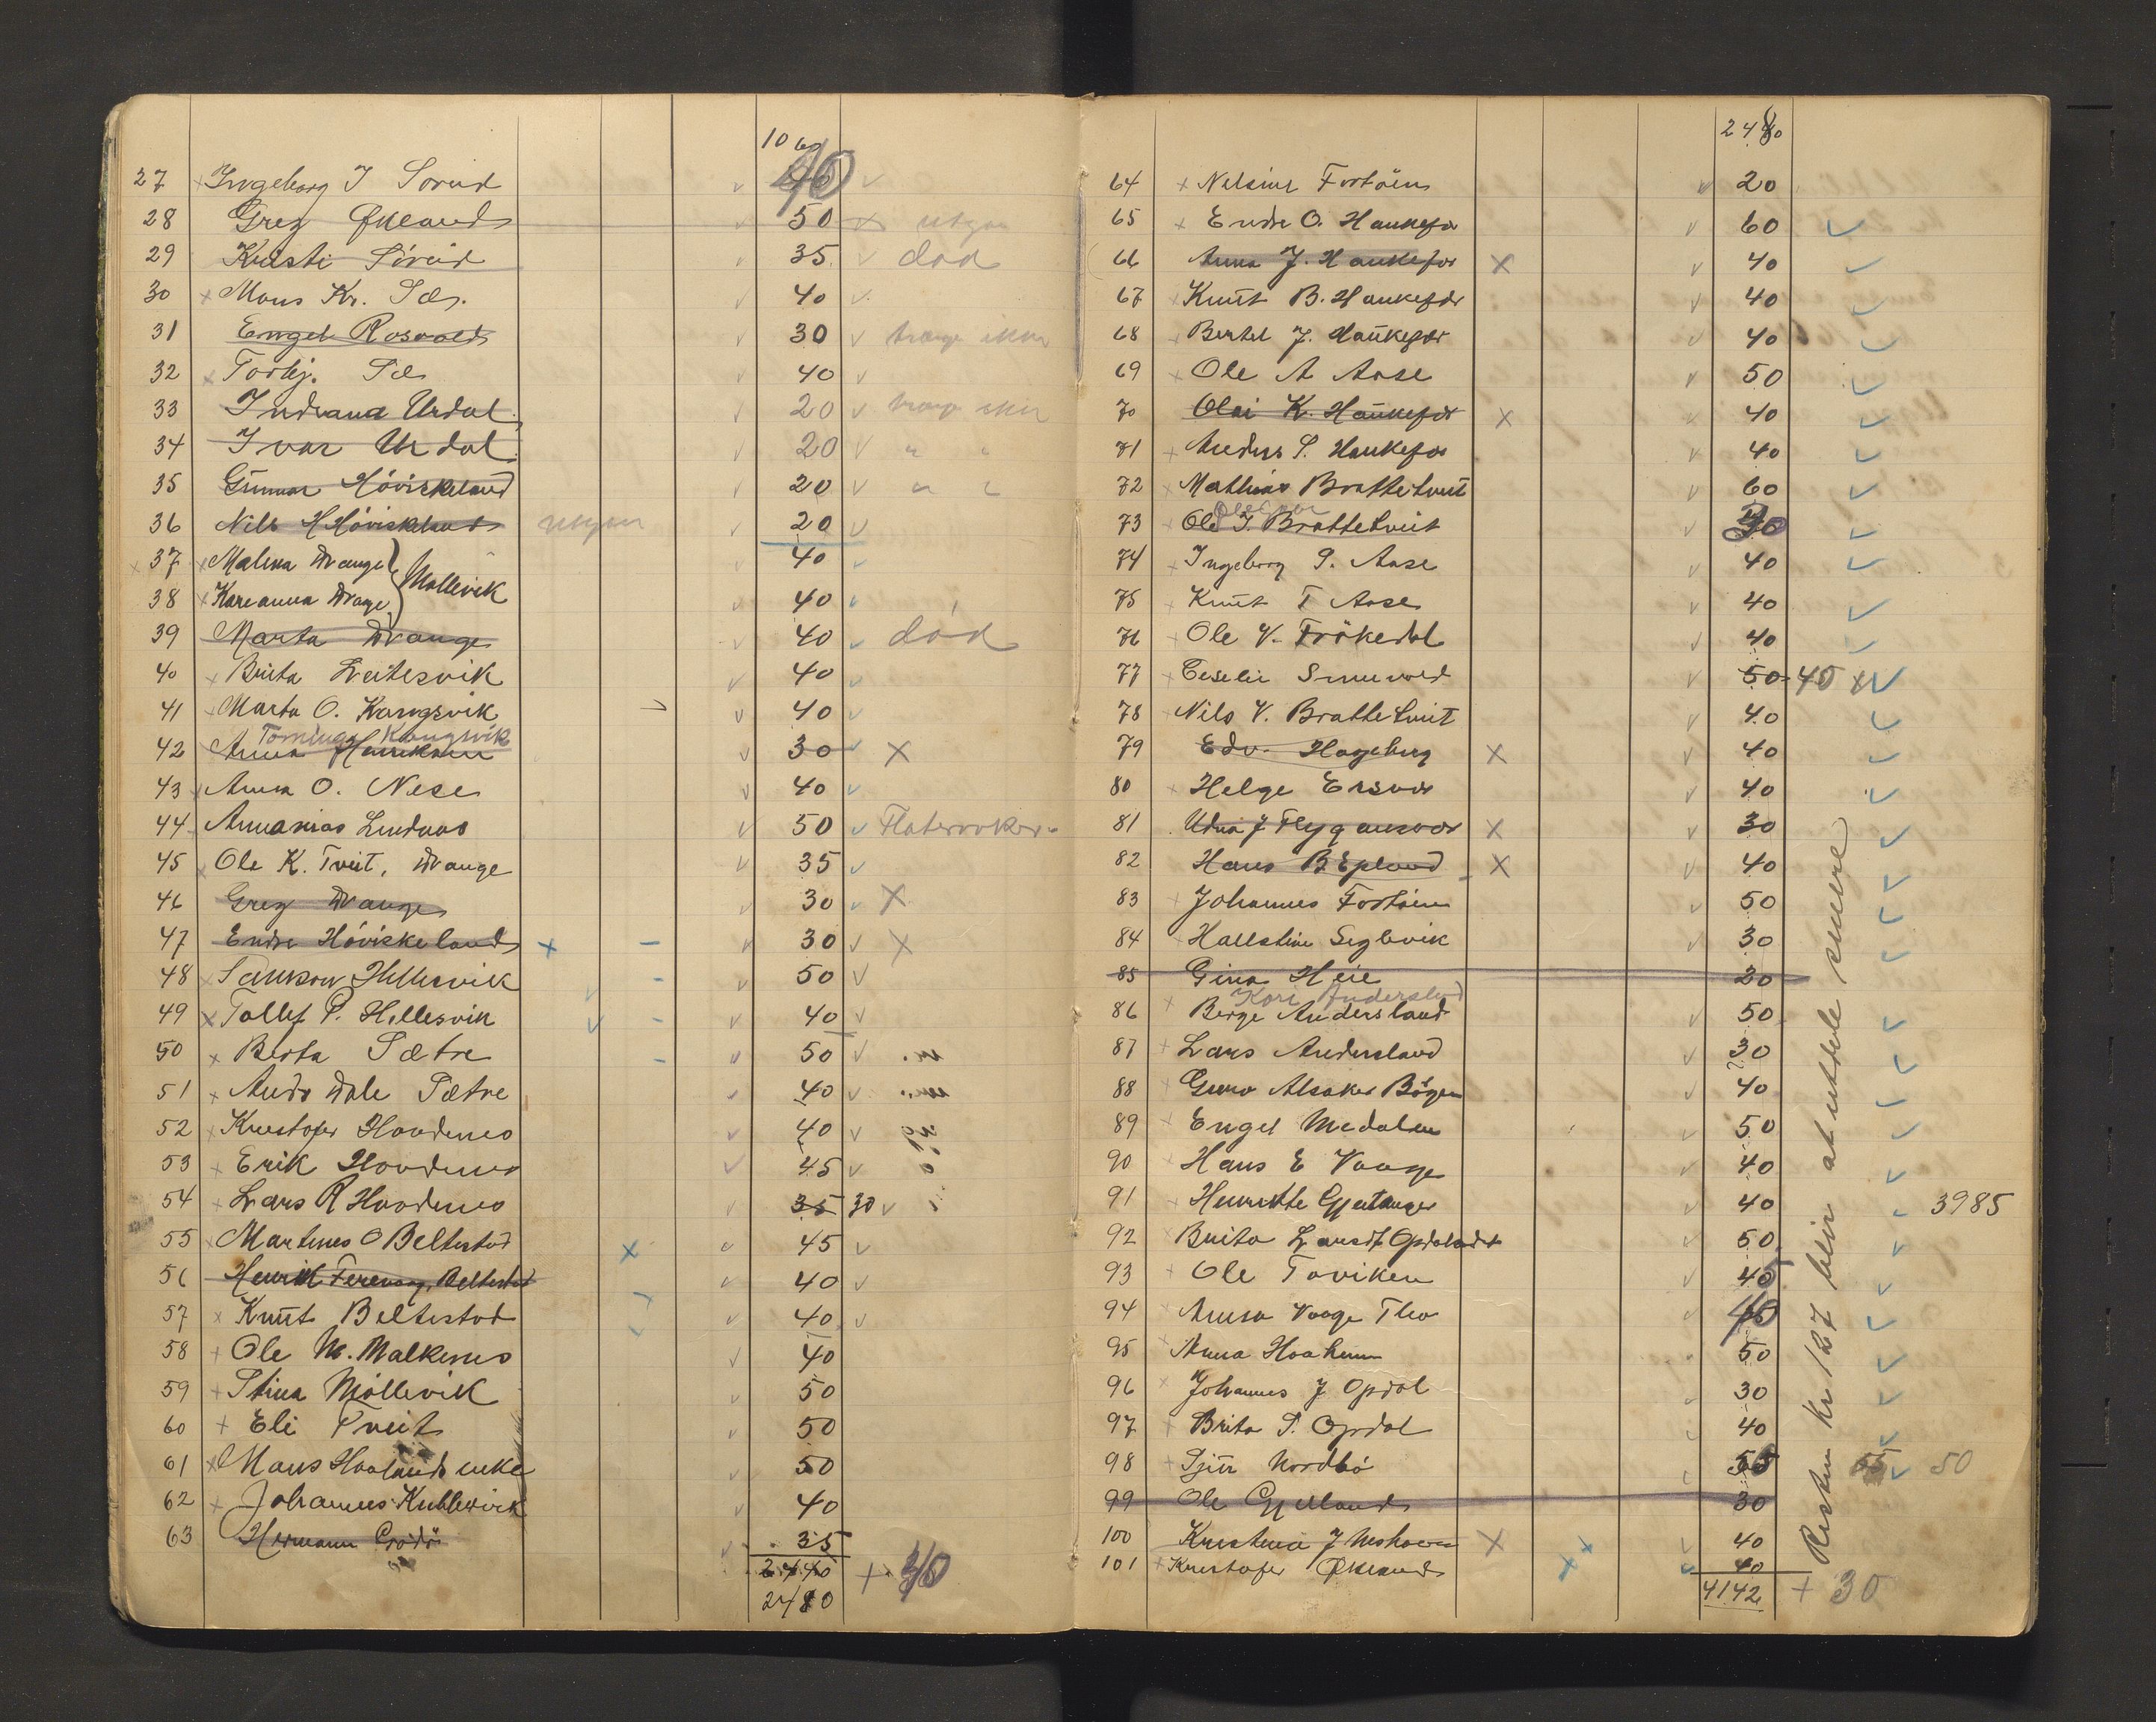 10 60
27 × Ingeborg J Söreid 40
28 Greg Økland 50 × utgår
29 Kristi Söreid 35 död
30 × Mons Kr. Sæ. 40
31 Engel Rosvold 30 trænge ikke
32 × Torbj. Sæ 40
33 Indiana Urdal 20 trænge ikke
34 Ivar Urdal 20 " "
35 Gunnar Höviskeland 20 " "
36 Nils H Höviskeland utgår 20
× 37 × Malena Drange } Mollevik 40
38 × Kareanna Drage 40
39 Marta Drange 40 död
40 × Brita Leitesvik 40
41 Marta O. Kangsvik 40
Kangsvik
42 Anna Henriksen 30 ×
43 × Anna O. Nese 40
44 Annanias Lindaas 50
45 × Ole K. Tveit, Drange 35
46 Greg Drange 30 ×
47 Endre Höviskeland × - 30 ×
48 × Samson Hillesvik - 50
49 × Tollef P. Hillesvik - 40
50 × Berta Sætre - 50
51 × Andr Dale Sætre 40
52 × Kristofer Hovdenes 40
53 × Erik Hovdenes 45
54 × Lars R Hovdenes 35 30
55 × Martines O Beltestad × 45
56 Henrik Ferevaag, Beltestad 40
57 × Knut Beltestad 40
58 + Ole M. Malkenes 40
59 + Stina Möllevik 50
60 + Eli Tveit 50
61 × Mons Haalands enke 50
62 × Johannes Kublevik 40
63 Hermann Grödö 35
2440 + 40
2480
2480
64 × Nelsine Fostöen 20
65 × Endre O. Haukefær 60
66 Anna J. Haukefær × 40
67 Knut B. Haukefær 40
68 Bertel J. Haukefær 40
69 × Ole A Aase 50
70 Olai K. Haukefær × 40
71 × Anders S. Haukefær 40
72 × Mathias Brattetveit 60
73 × Ole J. Brattetveit
74 × Ingeborg P. Aase 40
75 × Knut T Aase 40
76 Ole V. Frökedal 40
77 × Ceselie Smievold 50 40 ×
78 Nils V. Brattetveit 40
79 Edv. Hageberg × 40
80 × Helge Ersvær 40
81 Udna J Flygansvær × 30
82 Hans B Epland × 40
83 + Johannes Fostöien 50
84 Hallstein Seglevik 30
85 Gina Heie 20
Kari Andersland
86 × Berge Andersland 50
87 + Lars Andersland 30
88 Guro Alsaker Bögen 40
89 Engel Medalen 50
90 Hans E Vaage 40
91 Henrikke Gjertanger 40 3985
92 Brita Larsdt Opdalsdt 50
93 + Ole Toviken 40
94 Anna Vaage Tho 40
95 Anna Haaheim 50
96 Johannes J Opdal 30
97 + Brita S. Opdal 40
98 + Sjur Nordbö 55 50
99 Ole Gjelland 30
100 Kristense J Neshovn × 40
101 + Kristofer Økland 40
4142 + 30
Resten kr 127 blir at utdele senere